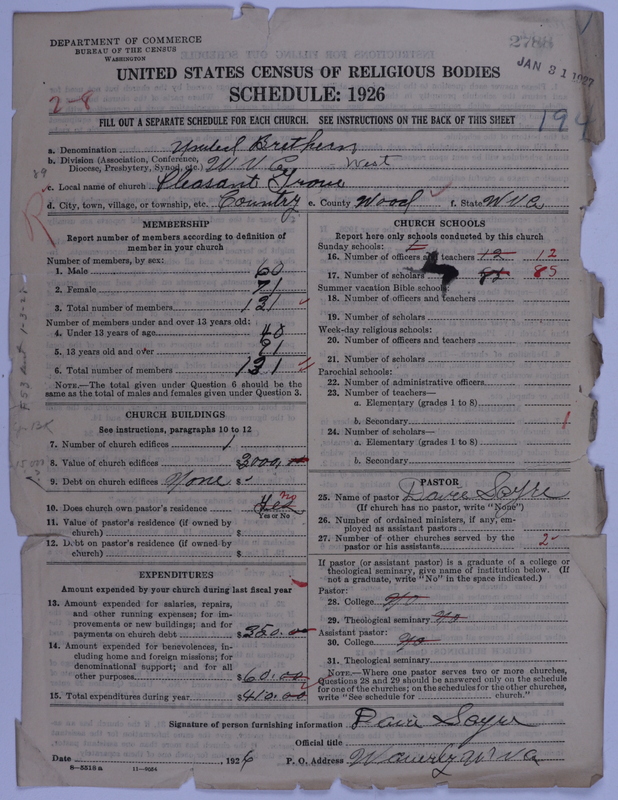 DEPARTMENT OF COMMERCE
BUREAU OF THE CENSUS
WASHINGTON
2788
JAN 31 1927
UNITED STATES CENSUS OF RELIGIOUS BODIES
SCHEDULE: 1926
2-8
194
FILL OUT A SEPARATE SCHEDULE FOR EACH CHURCH. SEE INSTRUCTIONS ON THE BACK OF THIS SHEET
a. Denomination United Brethern
b. Division (Association, Conference, Diocese, Presbytery, Synod, etc.) W V Co - West
89
c. Local name of church Pleasant Grove
d. City, town, village, or township, etc. Country e. County Wood f. State W Va
R
MEMBERSHIP
Report number of members according to definition of
member in your church
Number of members, by sex:
1. Male 60
2. Female 71
3. Total number of members 131
Number of members under and over 13 years old:
4. Under 13 years of age 40
5. 13 years old and over 91
6. Total number of members 131
NOTE.—The total given under Question 6 should be the
same as the total of males and females given under Question 3.
CHURCH BUILDINGS
See instructions, paragraphs 10 to 12
7. Number of church edifices 1
8. Value of church edifices $3000.00
9. Debt on church edifices None $
10. Does church own pastor's residence Yes no
Yes or No
11. Value of pastor's residence (if owned by
church) $
12. Debt on pastor's residence (if owned by
church) $
EXPENDITURES
Amount expended by your church during last fiscal year
13. Amount expended for salaries, repairs,
and other running expenses; for im-
provements or new buildings; and for
payments on church debt $350.00
14. Amount expended for benevolences, in-
cluding home and foreign missions; for
denominational support; and for all
other purposes $60.00
15. Total expenditures during year $410.00
CHURCH SCHOOLS
Report here only schools conducted by this church
Sunday schools:
16. Number of officers and teachers 12 12
17. Number of scholars 85 85
Summer vacation Bible schools:
18. Number of officers and teachers
19. Number of scholars
Week-day religious schools:
20. Number of officers and teachers
21. Number of scholars
Parochial schools:
22. Number of administrative officers
23. Number of teachers—
a. Elementary (grades 1 to 8)
b. Secondary 1
24. Number of scholars—
a. Elementary (grades 1 to 8)
b. Secondary
PASTOR
25. Name of pastor Davie Sayre
(If church has no pastor, write "None")
26. Number of ordained ministers, if any, em-
ployed as assistant pastors
27. Number of other churches served by the
pastor or his assistants 2
If pastor (or assistant pastor) is a graduate of a college or
theological seminary, give name of institution below. (If
not a graduate, write "No" in the space indicated.)
Pastor:
28. College No
29. Theological seminary No
Assistant pastor:
30. College No
31. Theological seminary
NOTE.—Where one pastor serves two or more churches,
Questions 28 and 29 should be answered only on the schedule
for one of the churches; on the schedules for the other churches,
write "See schedule for church."
Signature of person furnishing information Davie Sayre
Official title
Date , 1926 P. O. Address Waverly W Va
8-5518 a 11-9084